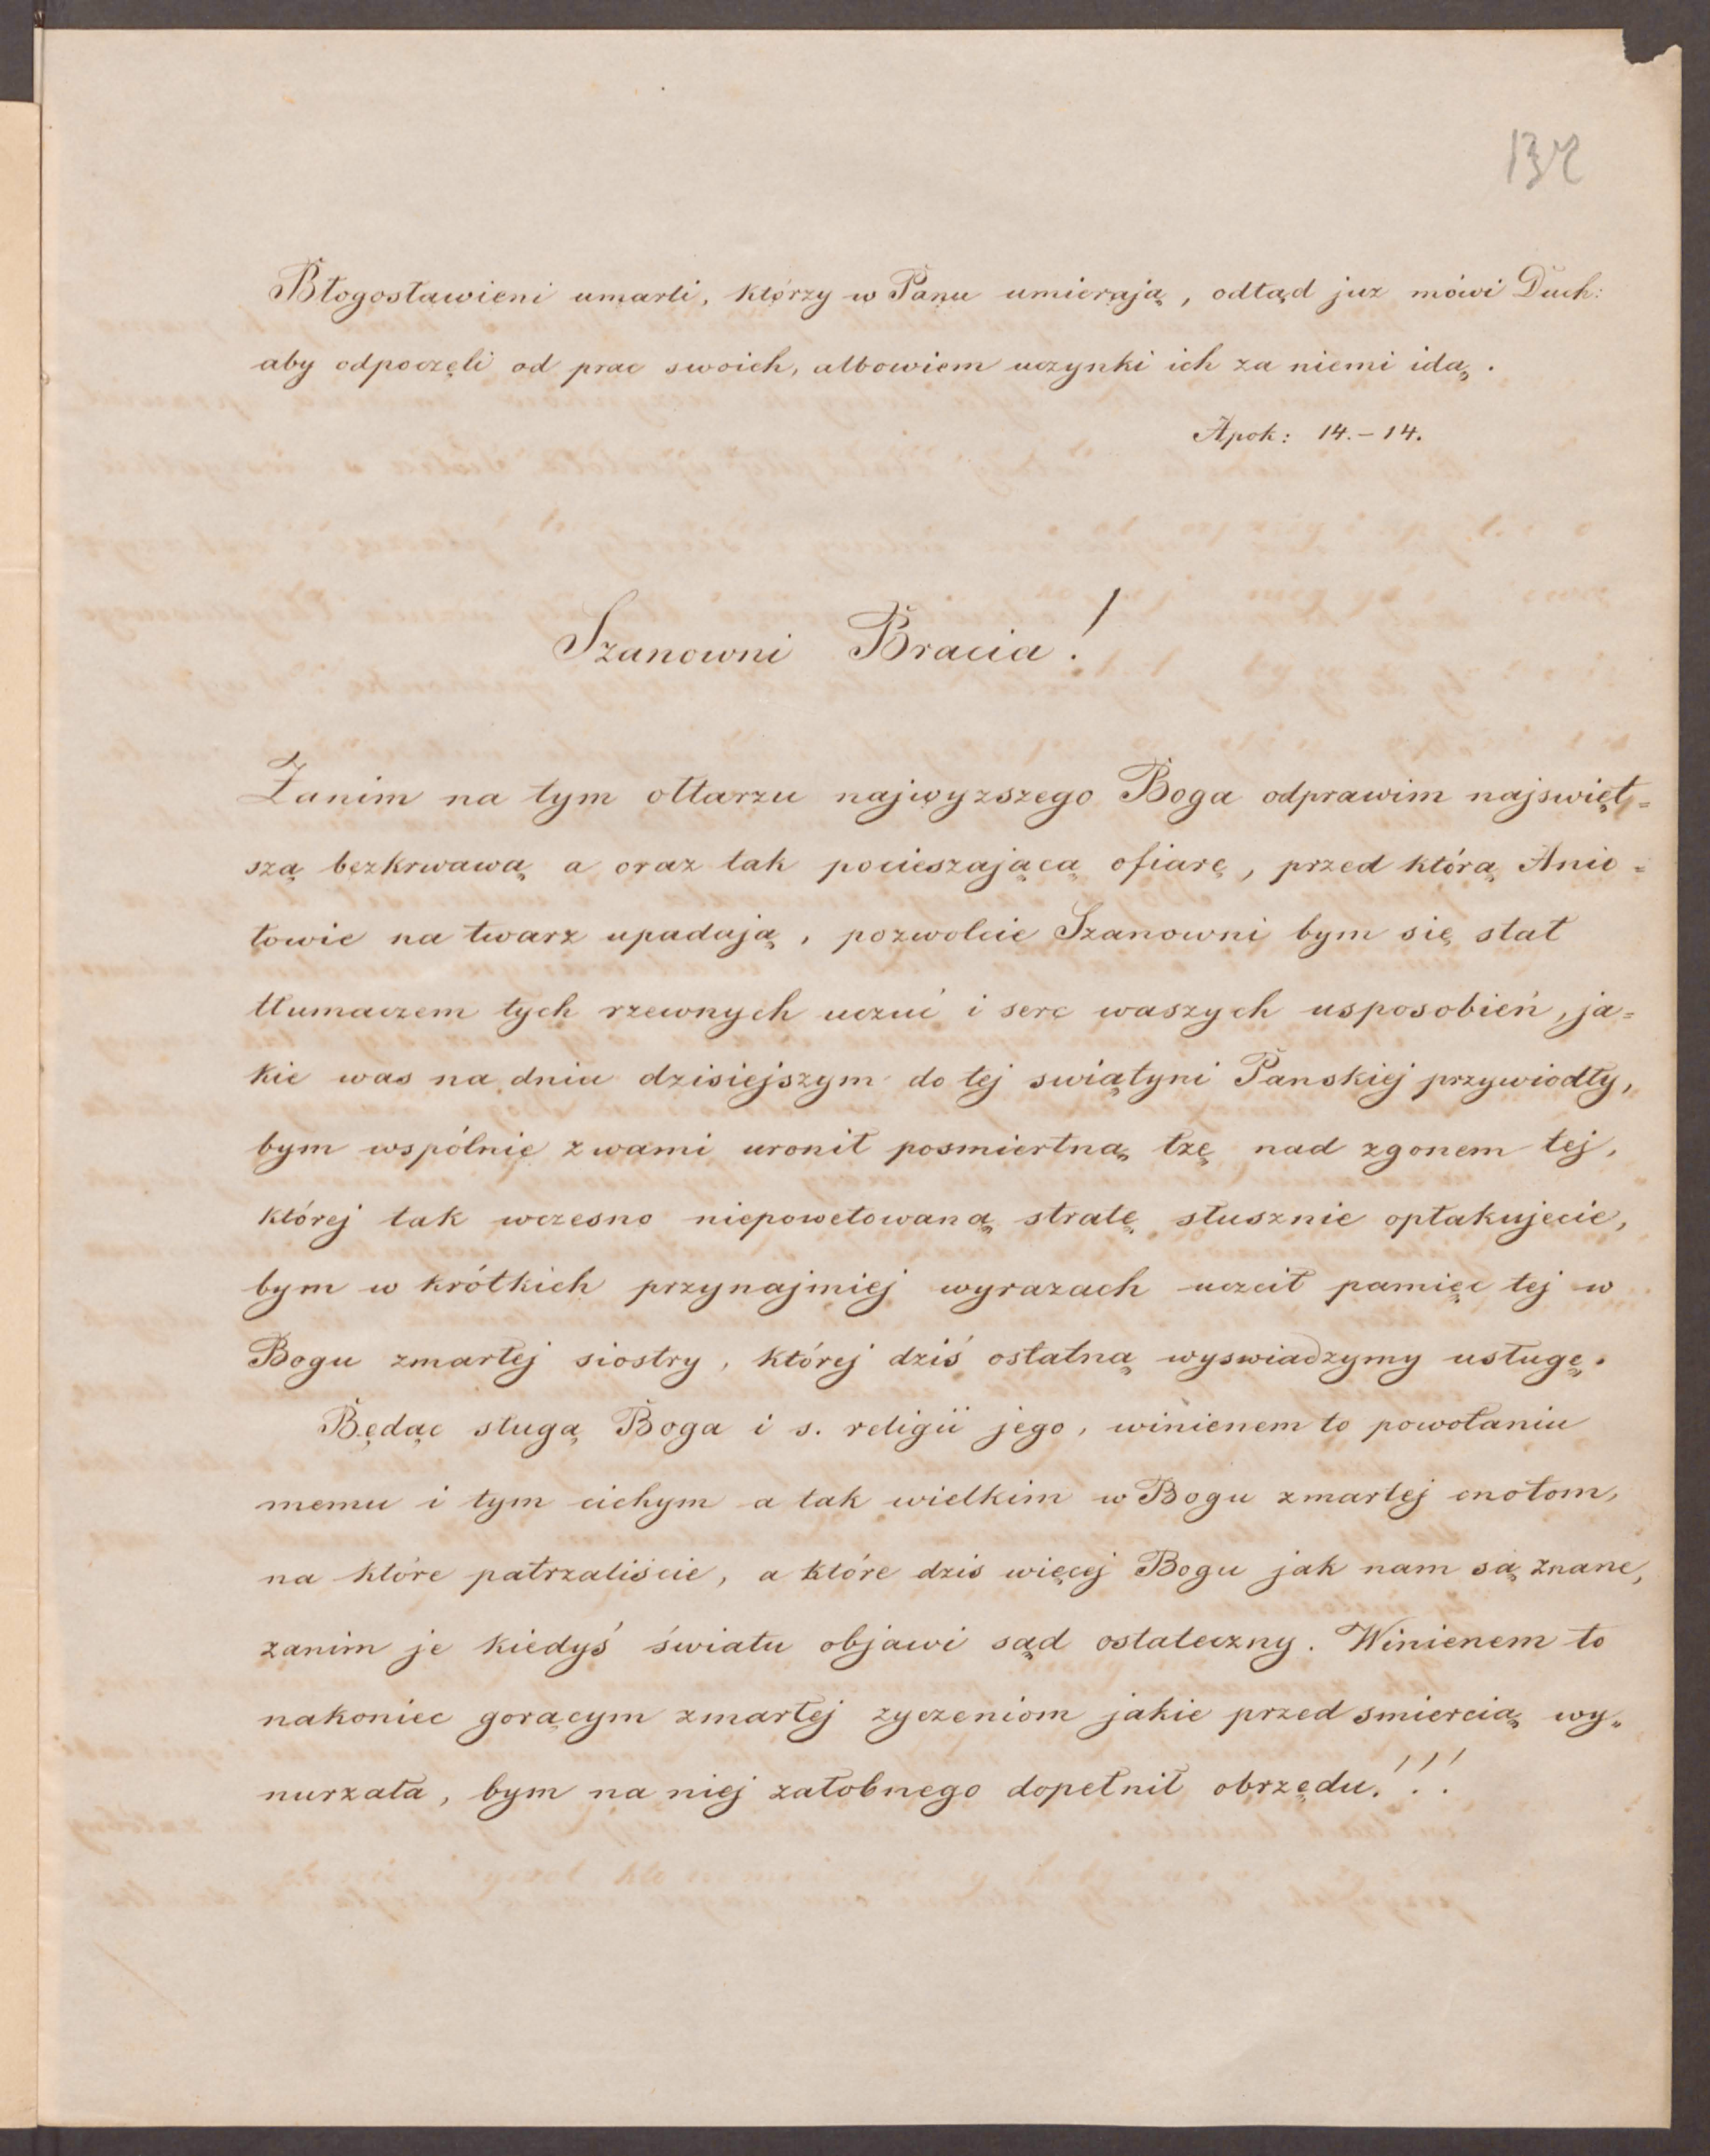 Błogosławieni umarli, którzy w Panu umierają, odtąd juz mówi Duch:
aby odpoczęli od prac swoich, albowiem uczynki ich za niemi idą.
Apok: 14.–14.
Szanowni Bracia!
Zanim na tym ołtarzu najwyzszego Boga odprawim najswięt=
szą bezkrwawą a oraz tak pocieszającą ofiarę, przed którą Anio=
łowie na twarz upadają, pozwolcie Szanowni bym się stał
tłumaczem tych rzewnych uczuć i serc waszych usposobień, ja=
kie was na dniu dzisiejszym do tej swiątyni Panskiej przywiodły,
bym wspólnie z wami uronił posmiertną łzę nad zgonem tej,
której tak wczesno niepowetowaną stratę słusznie opłakujecie,
bym w krótkich przynajmniej wyrazach uczcił pamięc tej w
Bogu zmarłej siostry, której dziś ostatną wyswiadzymy usługę.
Będąc sługą Boga i s. religii jego, winienem to powołaniu
memu i tym cichym a tak wielkim w Bogu zmarłej cnotom,
na które patrzaliście, a które dzis więcej Bogu jak nam są znane,
zanim je kiedyś światu objawi sąd ostateczny. Winienem to
nakoniec gorącym zmarłej zyczeniom jakie przed smiercią wy„
nurzała, bym na niej załobnego dopełnił obrzędu.!!!